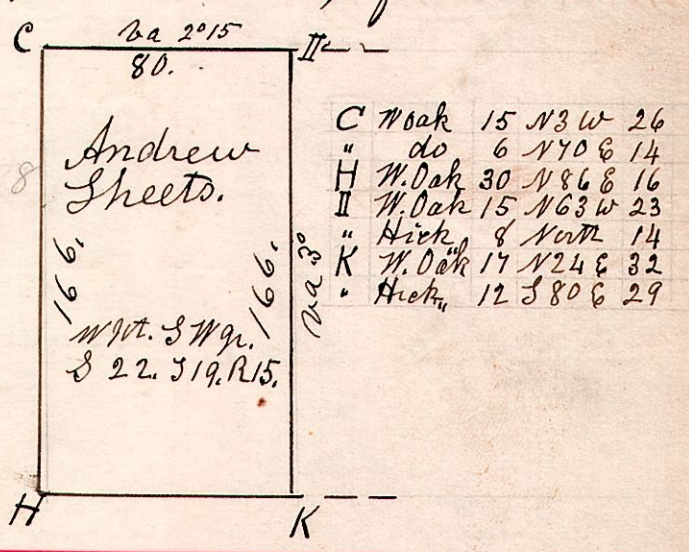 C va 2°15 II
80.
Andrew
Sheets.
166.
166.
va 3°
W pt. S W qr.
S 22. T 19. R 15.
H K
C W oak 15 N 3 W 26
" do 6 N 70 E 14
H W. Oak 30 N 86 E 16
II W. Oak 15 N 63 W 23
" Hick 8 North 14
K W. Oak 17 N 24 E 32
" Hick" 12 S 80 E 29